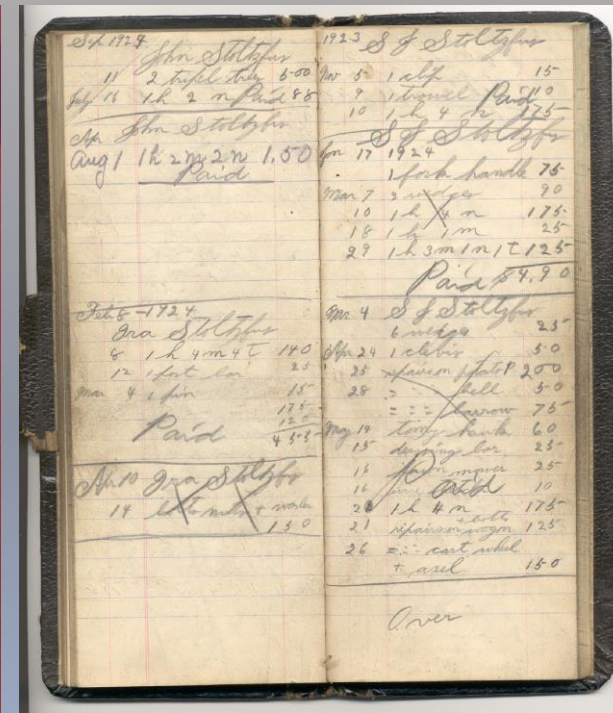 Sep 1924
John Stoltzfus
11 2 tripel trey 500
July 16 1 h 2 n Paid 88
Apr John Stoltzfus
Aug 1 1 h 2 m 2 n 1.50
Paid
Feb 8 - 1924
Ira Stoltzfus
8 1 h 4 m 4 t 140
12 1 bar 25
Mar 4 1 pin 15
175
Paid
4 55
Apr 10 Ira Stoltzfus
14 nuts +
1 50
1923 S J Stoltzfus
Nov 5 1 15
9 1 trowel Paid 110
10 1 h 4 n 175
S J Stoltzfus
Jan 17 1924
1 fork handle 75
Mar 7 2 wedges 90
10 1 h 4 n 175
18 1 h 1 m 25
29 1 h 3 m 1 n 1 t 125
Paid $4.90
Mr 4 S J Stoltzfus
6 wedges 25
Apr 24 1 clevis 50
25 repair on potato P 200
28 bell 50
barrow 75
May 14 60
15 digging bar 25
15 mower 25
16 Paid 10
21 1 h 4 n 175
21 repair on wagon + bolts 125
26 cart wheel
+ axel 150
Over